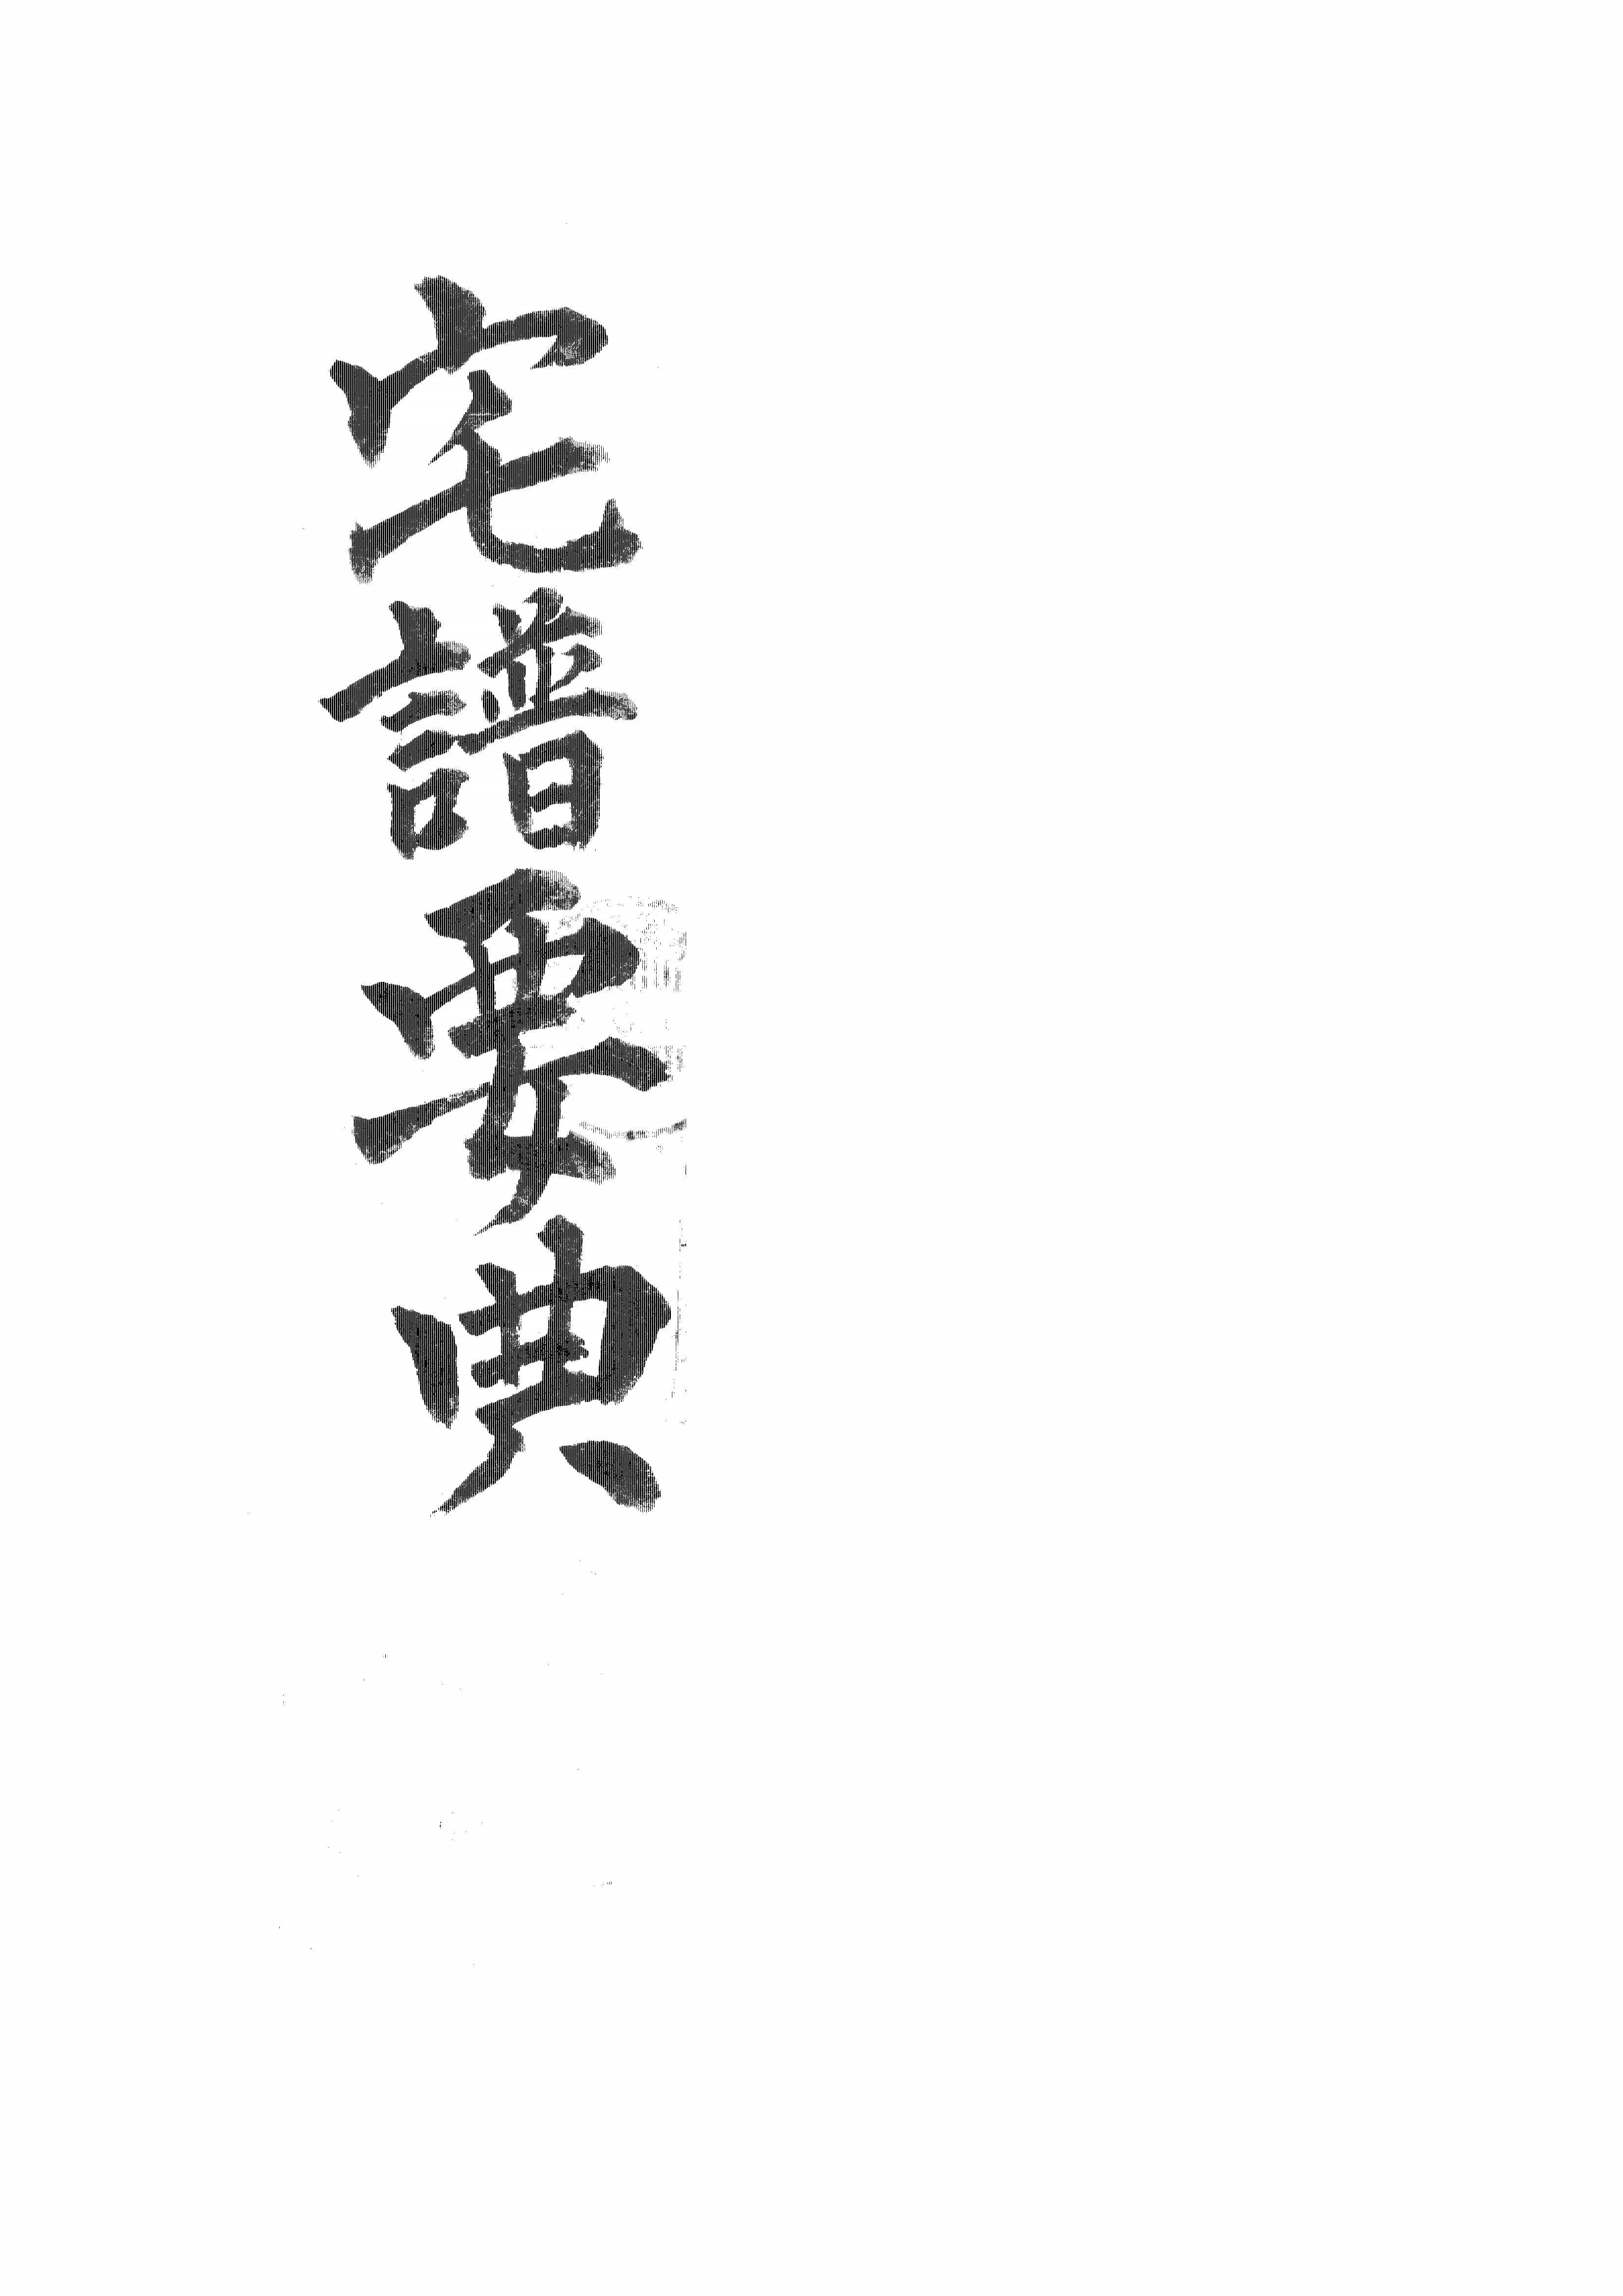 宅譜要典